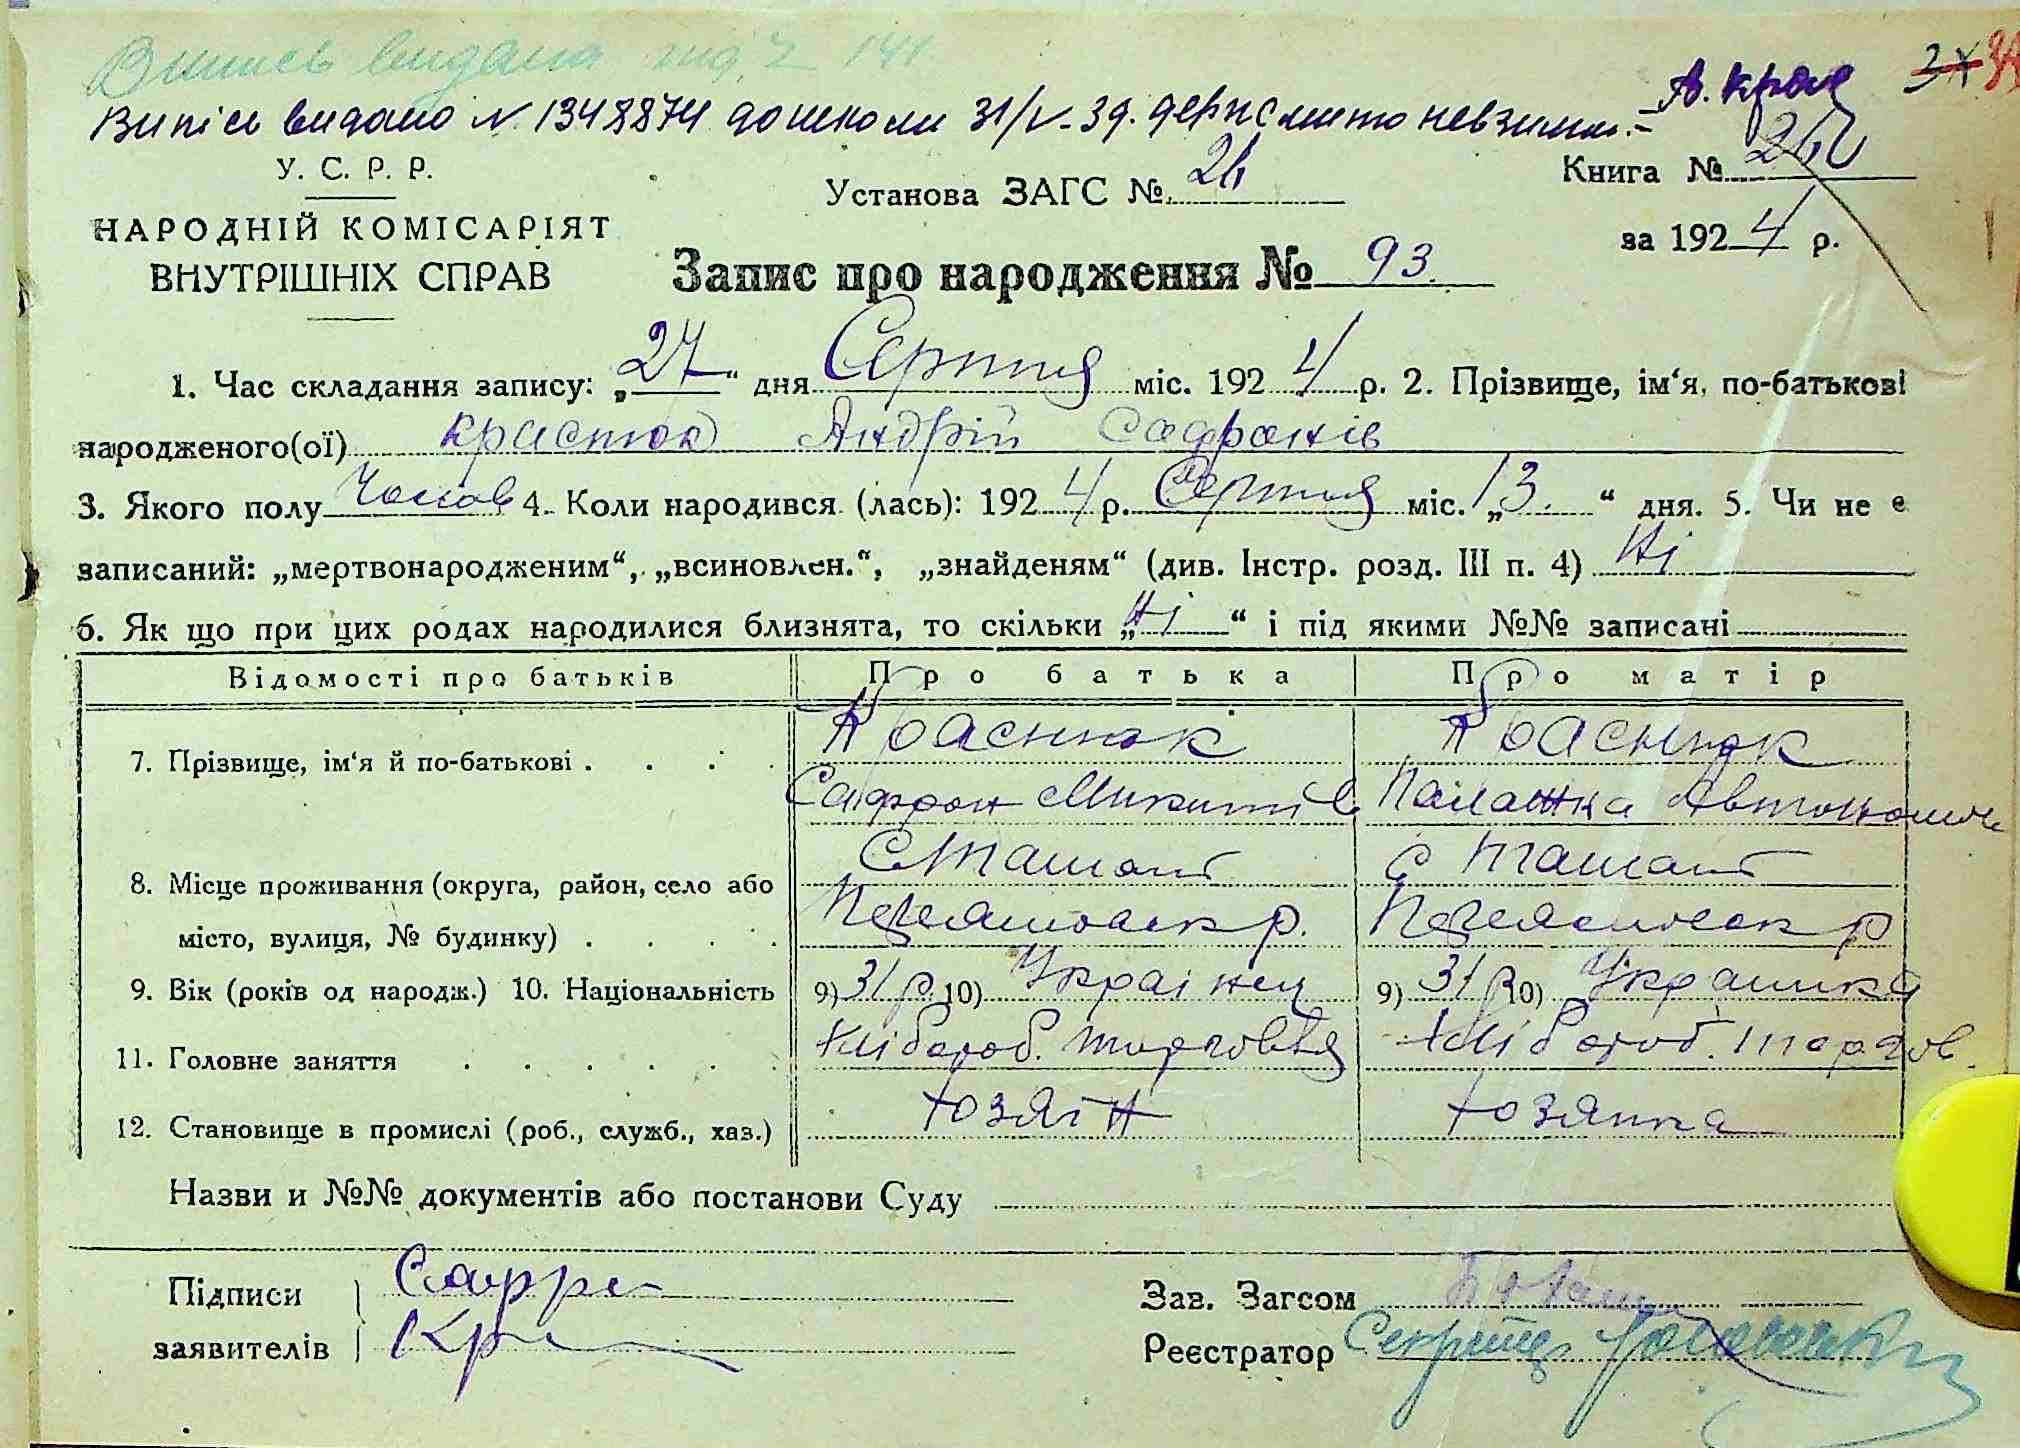 Випись видана под. 2 141
Випісь видано N 1348874 до школи 31/V-39. держ мито невзима.-
У. С. Р. Р.
НАРОДНІЙ КОМІСАРІЯТ
ВНУТРІШНІХ СПРАВ
Установа ЗАГС №
Книга №
за 1924 р.
Запис про народження № 93.
1. Час складання запису: „27“ дня Серпня міс. 1924 р. 2. Прізвище, ім‘я, по-батькові
народженого(ої) Краснюк Андрій Сафронів
3. Якого полу Чолов 4. Коли народився (лась): 1924 р. Серпня міс. „13.“ дня. 5. Чи не є
записаний: „мертвонародженим“, „всиновлен.“, „знайденям“ (див. Інстр. розд. III п. 4) Ні
6. Як що при цих родах народилися близнята, то скільки „Ні“ і під якими №№ записані
Відомості про батьків Про батька Про матір
7. Прізвище, ім‘я й по-батькові Краснюк Краснюк
Сафрон Микитів Палажка Автономов
С Ташлик С Ташлик
8. Місце проживання (округа, район, село або
місто, вулиця, № будинку)
9. Вік (років од народж.) 10. Національність 9) 31 р 10) Українец 9) 31 р 10) Украинка
11. Головне заняття Хлібороб. торговля Хлібороб. торгов
12. Становище в промислі (роб., служб., хаз.) Хозяїн Хозяика
Назви и №№ документів або постанови Суду
Підписи Сафро
заявителів Кра
Зав. Загсом
Реєстратор Секретар